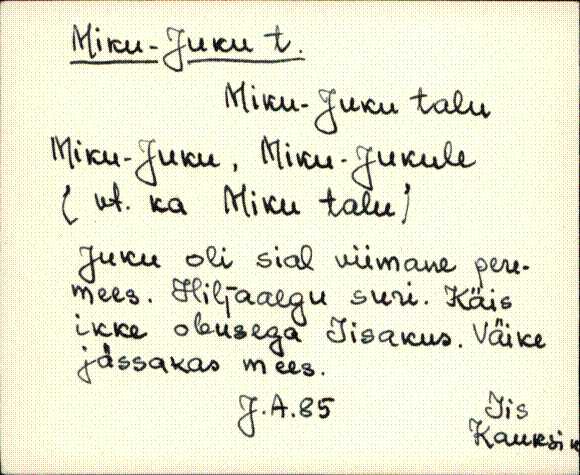 Miku-Juku t.
Miku-Juku talu
Miku-Juku, Miku-Jukule
(vt. ka Miku talu)
Juku oli sial viimane pere-
mees. Hiljaaegu suri. Käis
ikke obusega Iisakus. Väike
jässakas mees.
J.A.85
Iis
Kauksi k